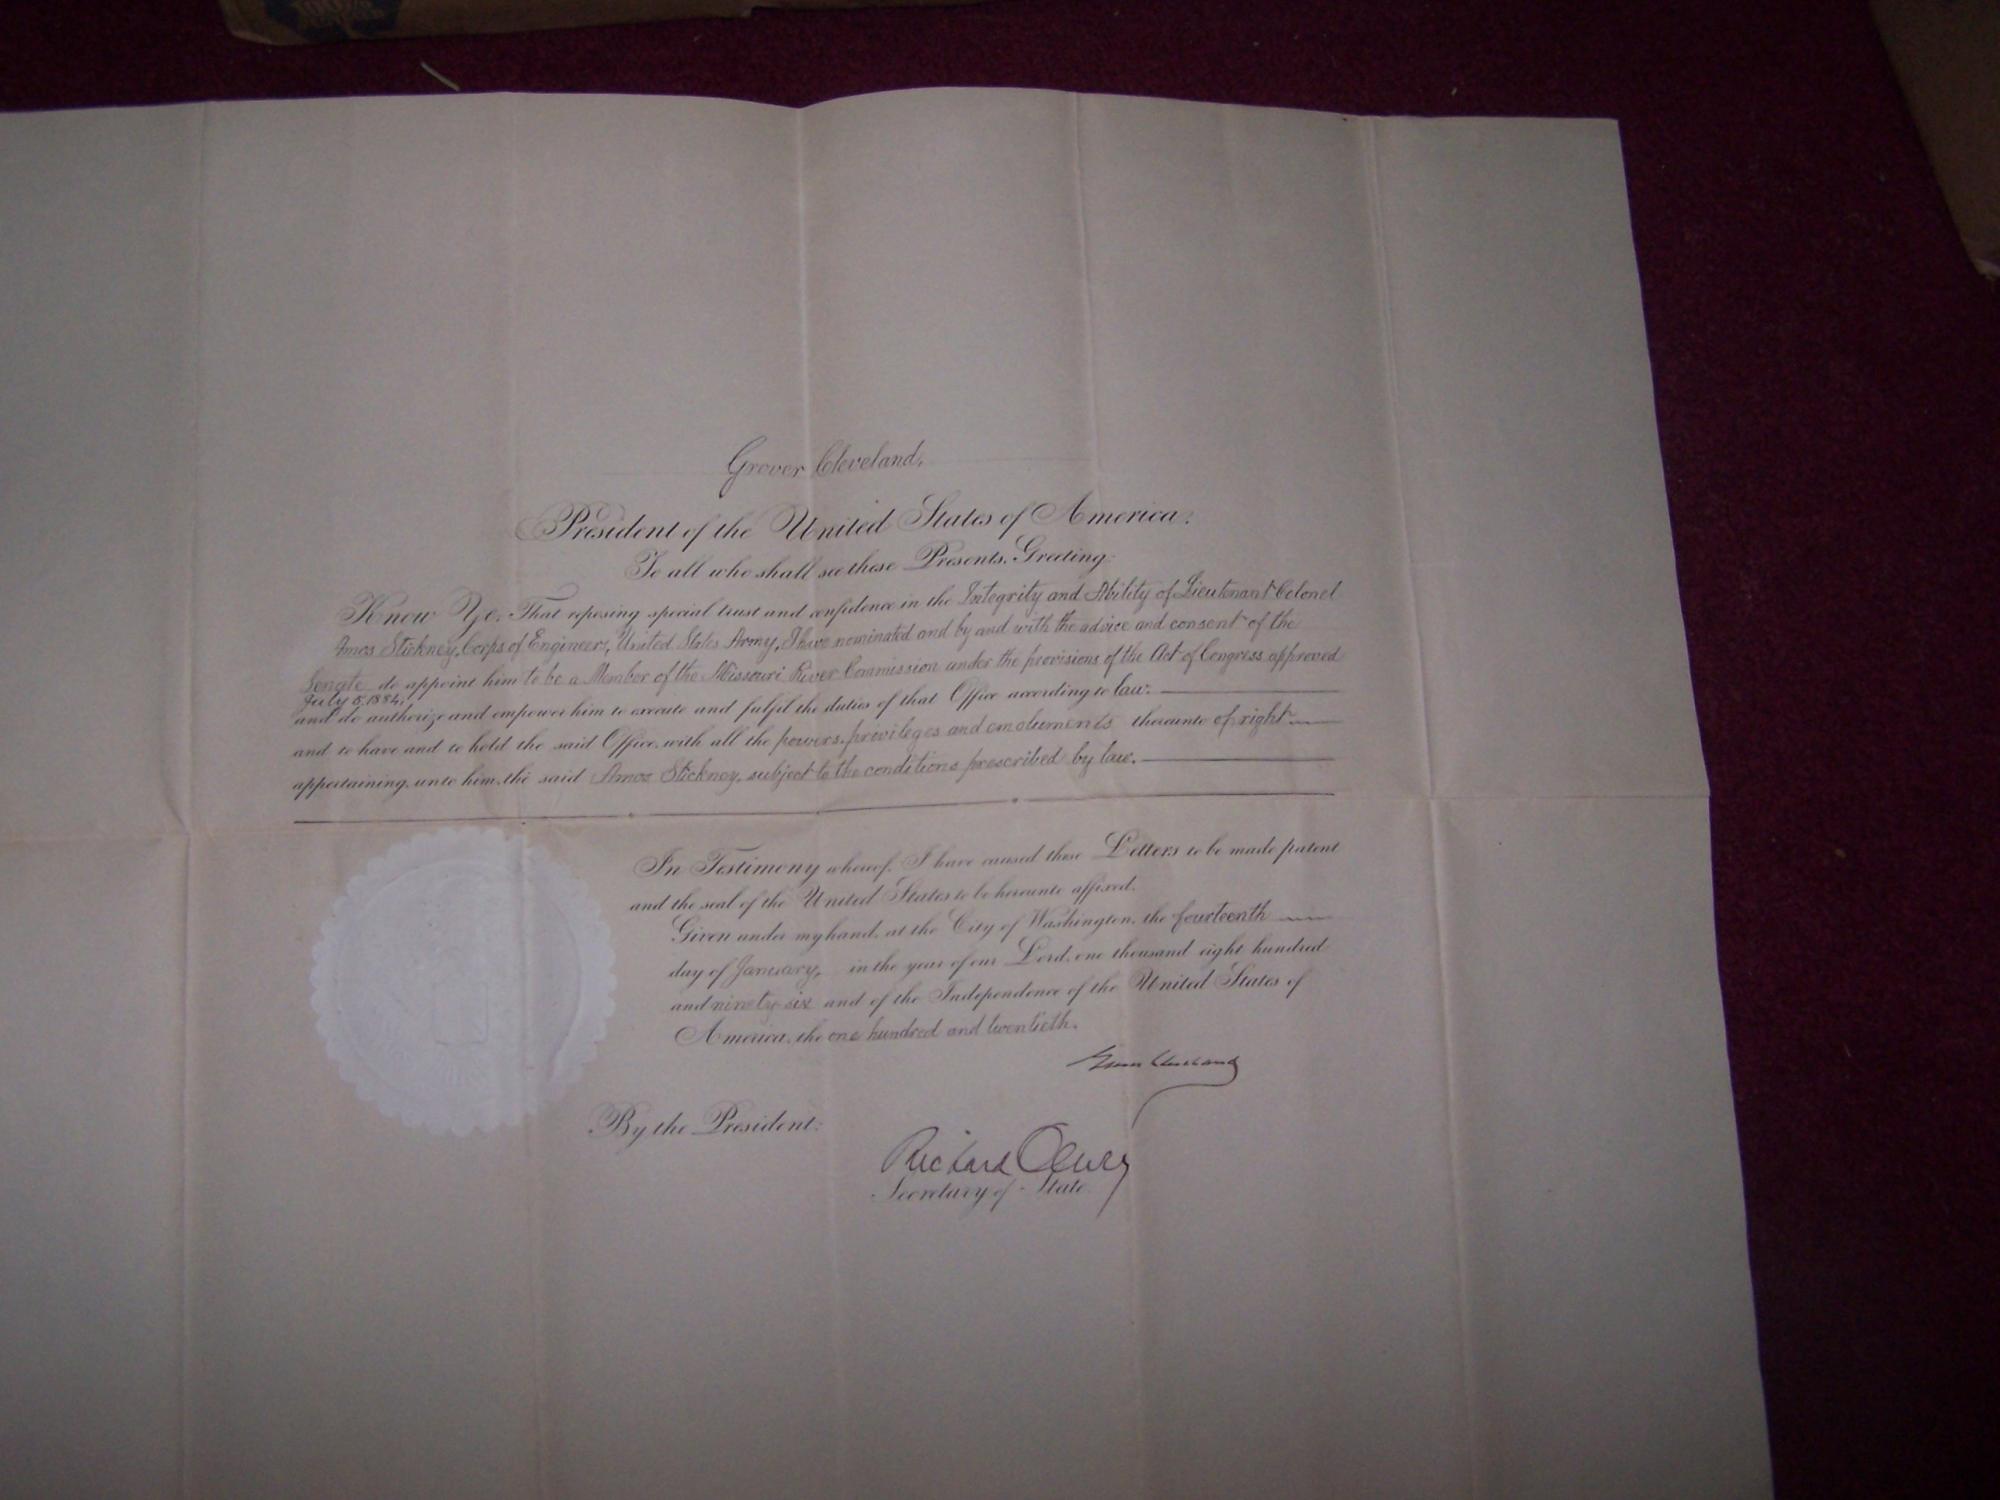 Grover Cleveland,
President of the United States of America:
To all who shall see these Presents, Greeting:
Know Ye, That reposing special trust and confidence in the Integrity and Ability of Lieutenant Colonel
Amos Stickney, Corps of Engineers, United States Army, I have nominated and by and with the advice and consent of the
Senate do appoint him to be a Member of the Missouri River Commission under the provisions of the Act of Congress approved
July 5, 1884;
and do authorize and empower him to execute and fulfil the duties of that Office according to law:
and to have and to hold the said Office, with all the powers, privileges and emoluments thereunto of right
appertaining, unto him, the said Amos Stickney, subject to the conditions prescribed by law.
In Testimony whereof, I have caused these Letters to be made patent
and the seal of the United States to be hereunto affixed.
Given under my hand, at the City of Washington, the fourteenth
day of January, in the year of our Lord, one thousand eight hundred
and ninety-six and of the Independence of the United States of
America, the one hundred and twentieth.
Grover Cleveland
By the President:
Richard Olney
Secretary of State.